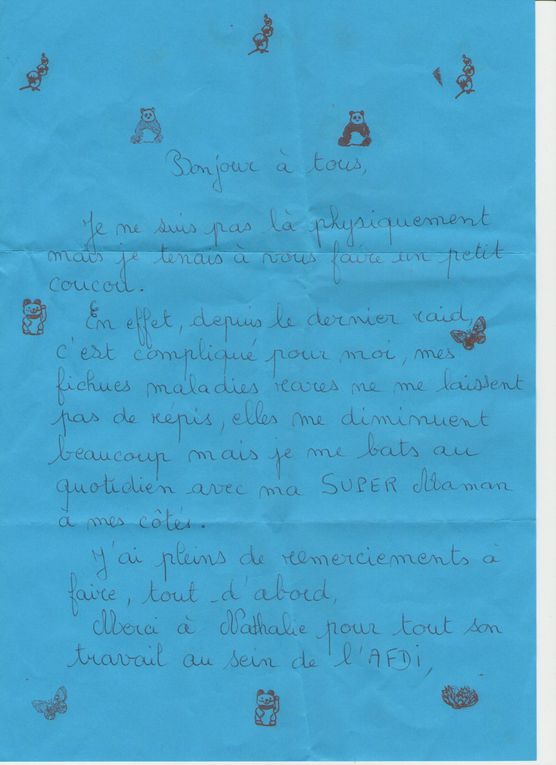 Bonjour à tous,
Je ne suis pas là physiquement
mais je tenais à vous faire un petit
coucou.
En effet, depuis le dernier raid,
c'est compliqué pour moi, mes
fichues maladies rares ne me laissent
pas de répis, elles me diminuent
beaucoup mais je me bats au
quotidien avec ma SUPER Maman
à mes côtés.
J'ai pleins de remerciements à
faire, tout d'abord,
Merci à Nathalie pour tout son
travail au sein de l'AFDI,